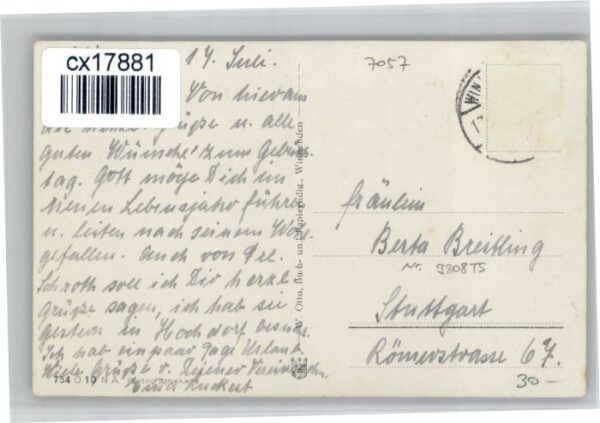 cx17881
14 Juli.
Von hieraus
grüße u. alle
guten Wünsche zum Geburts-
tag. Gott möge Dich im
neuen Lebensjahr führen
u. leiten nach seinem Wohl-
gefallen. Auch von Frl.
Schroth soll ich Dir herzl.
grüße sagen, ich hab sie
gestern in Hochdorf besucht.
Ich hab ein paar Tage Urlaub.
Viele Grüße v. Deiner
7057
WIN
W. Otto, Buch- und Papierhdlg., Winnenden
Fräulein
Berta Breitling
Nr. 9808TS
Stuttgart
Römerstrasse 67.
30-
734 O 10 N A